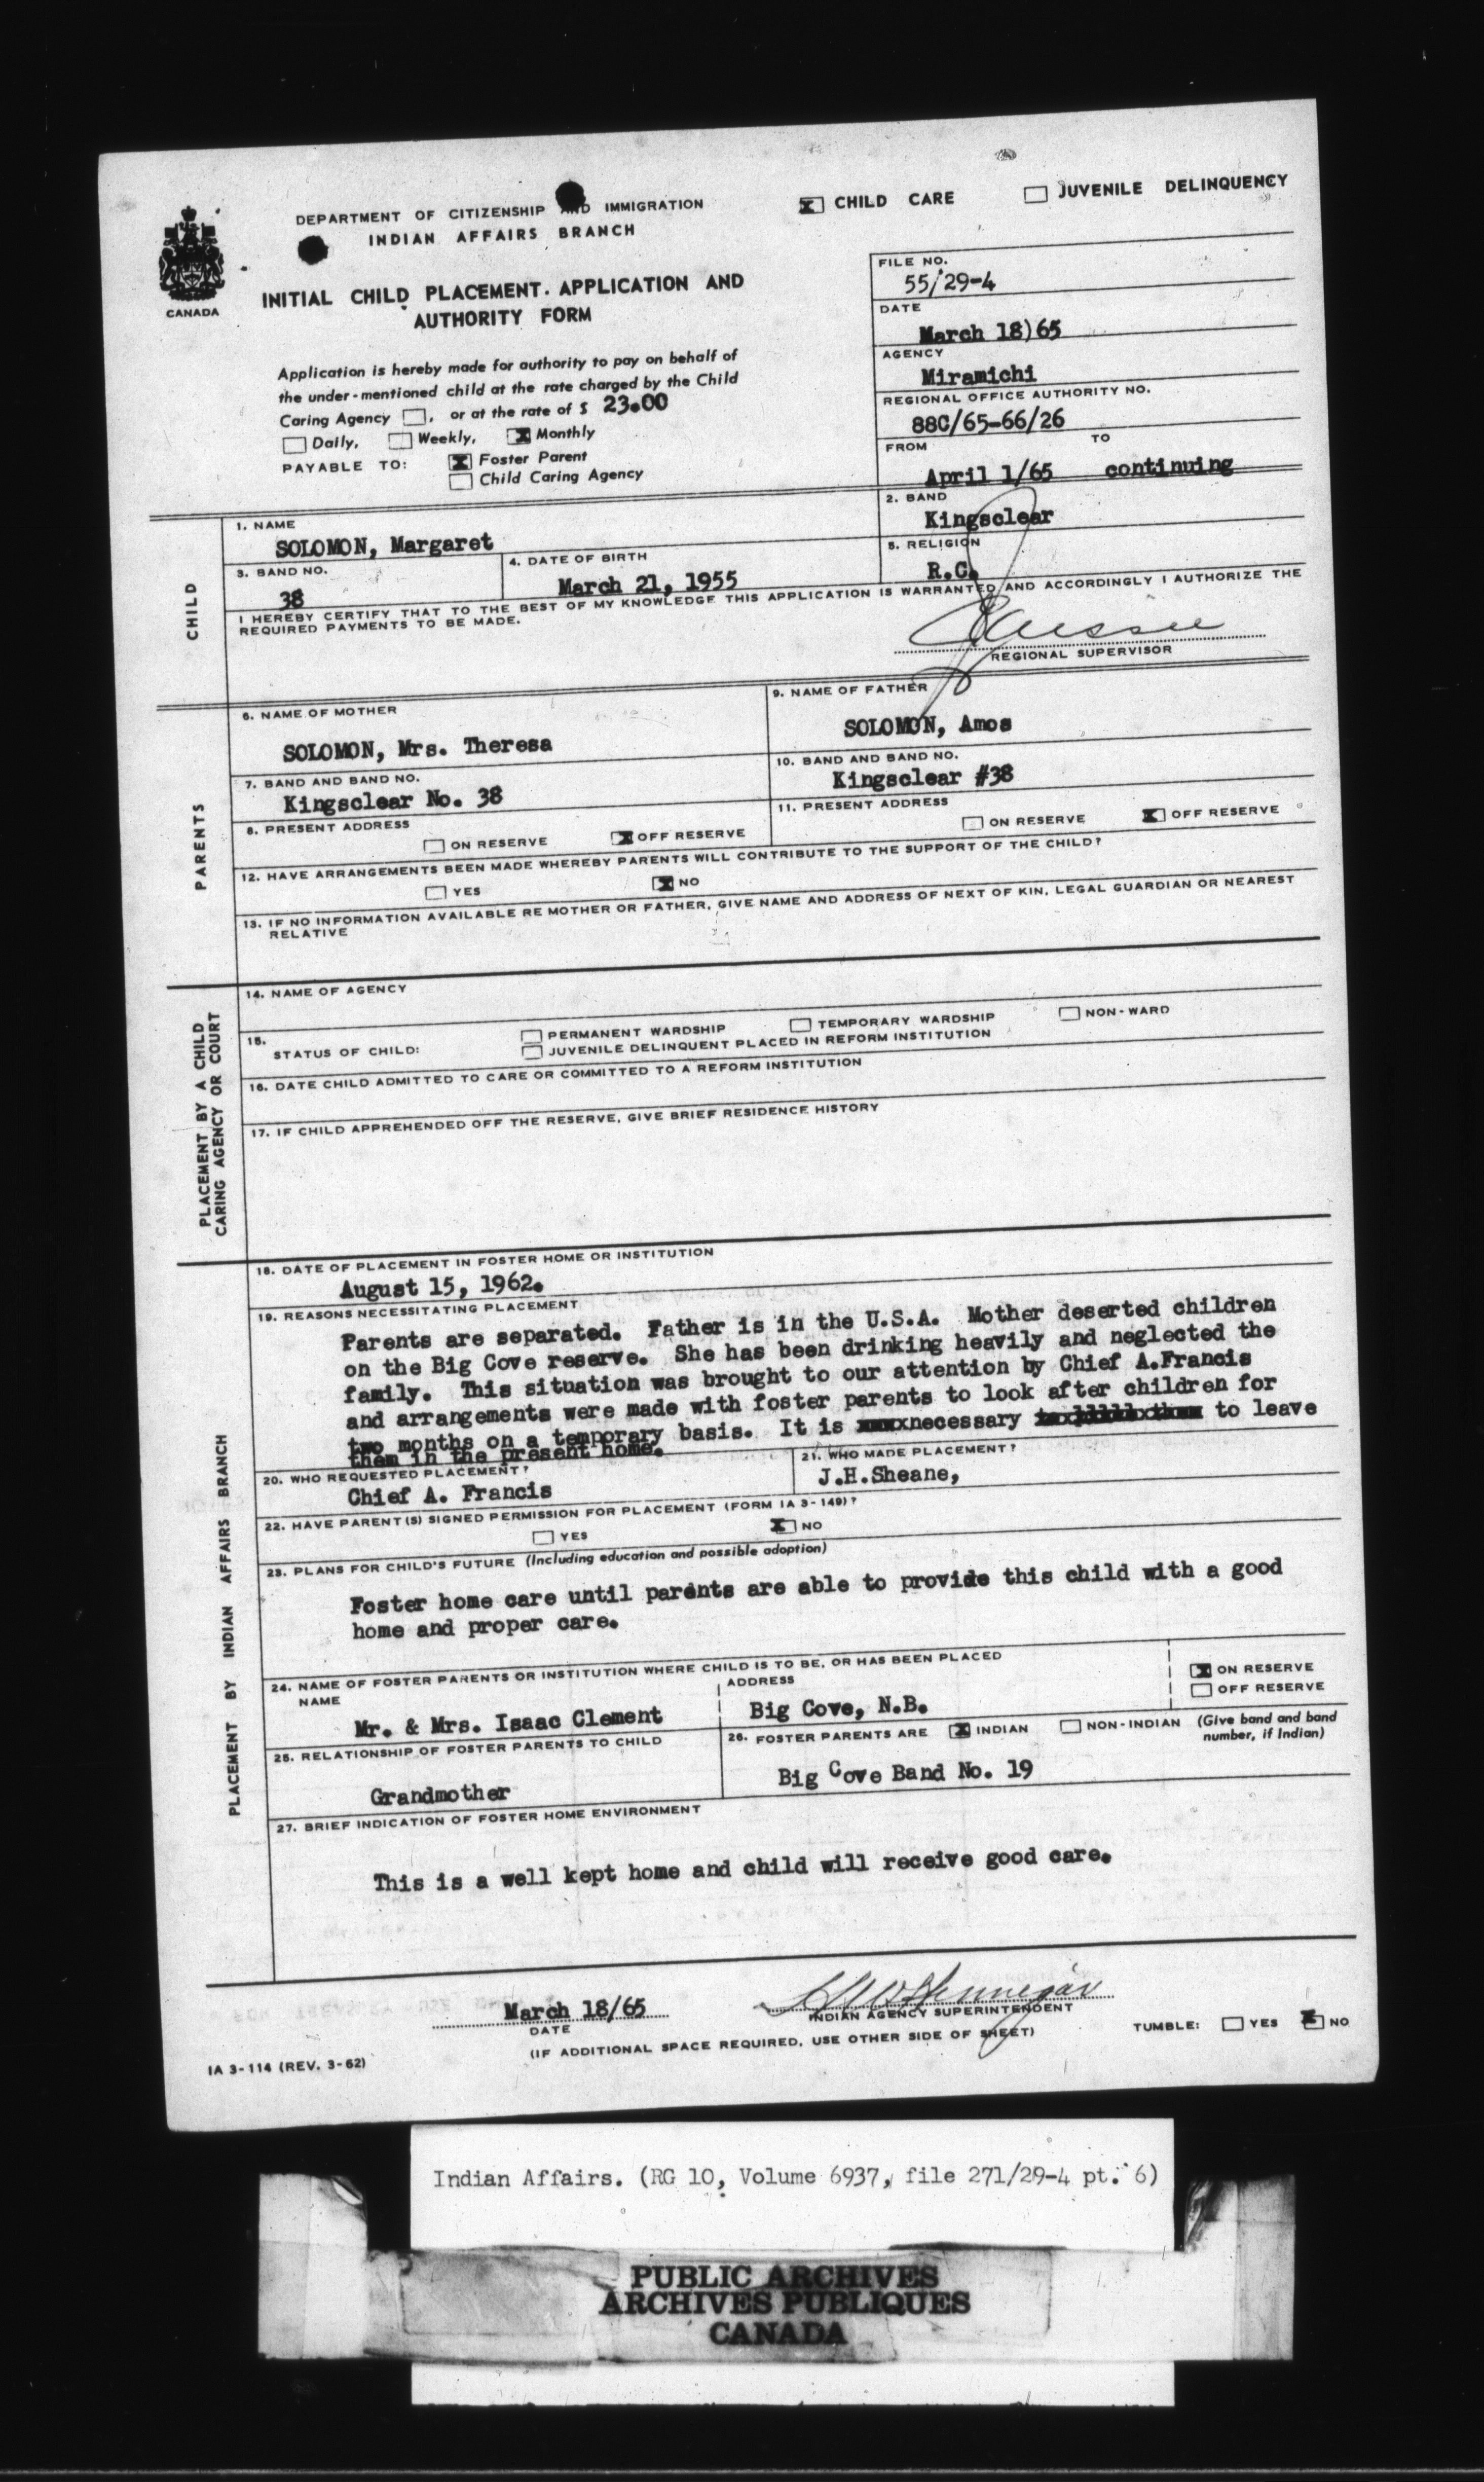 DEPARTMENT OF CITIZENSHIP AND IMMIGRATION
INDIAN AFFAIRS BRANCH
CANADA
INITIAL CHILD PLACEMENT. APPLICATION AND
AUTHORITY FORM
☒ CHILD CARE ☐ JUVENILE DELINQUENCY
Application is hereby made for authority to pay on behalf of
the under-mentioned child at the rate charged by the Child
Caring Agency ☐, or at the rate of $ 23.00
☐ Daily, ☐ Weekly, ☒ Monthly
PAYABLE TO: ☒ Foster Parent
☐ Child Caring Agency
FILE NO.
55/29-4
DATE
March 18)65
AGENCY
Miramichi
REGIONAL OFFICE AUTHORITY NO.
88C/65-66/26
FROM TO
April 1/65 continuing
CHILD
1. NAME
SOLOMON, Margaret
2. BAND
Kingsclear
3. BAND NO.
38
4. DATE OF BIRTH
March 21, 1955
5. RELIGION
R.C.
I HEREBY CERTIFY THAT TO THE BEST OF MY KNOWLEDGE THIS APPLICATION IS WARRANTED AND ACCORDINGLY I AUTHORIZE THE
REQUIRED PAYMENTS TO BE MADE.
REGIONAL SUPERVISOR
PARENTS
6. NAME OF MOTHER
SOLOMON, Mrs. Theresa
9. NAME OF FATHER
SOLOMON, Amos
7. BAND AND BAND NO.
Kingsclear No. 38
10. BAND AND BAND NO.
Kingsclear #38
8. PRESENT ADDRESS
☐ ON RESERVE ☒ OFF RESERVE
11. PRESENT ADDRESS
☐ ON RESERVE ☒ OFF RESERVE
12. HAVE ARRANGEMENTS BEEN MADE WHEREBY PARENTS WILL CONTRIBUTE TO THE SUPPORT OF THE CHILD?
☐ YES ☒ NO
13. IF NO INFORMATION AVAILABLE RE MOTHER OR FATHER, GIVE NAME AND ADDRESS OF NEXT OF KIN, LEGAL GUARDIAN OR NEAREST
RELATIVE
PLACEMENT BY A CHILD
CARING AGENCY OR COURT
14. NAME OF AGENCY
15.
STATUS OF CHILD:
☐ PERMANENT WARDSHIP ☐ TEMPORARY WARDSHIP ☐ NON-WARD
☐ JUVENILE DELINQUENT PLACED IN REFORM INSTITUTION
16. DATE CHILD ADMITTED TO CARE OR COMMITTED TO A REFORM INSTITUTION
17. IF CHILD APPREHENDED OFF THE RESERVE, GIVE BRIEF RESIDENCE HISTORY
PLACEMENT BY INDIAN AFFAIRS BRANCH
18. DATE OF PLACEMENT IN FOSTER HOME OR INSTITUTION
August 15, 1962.
19. REASONS NECESSITATING PLACEMENT
Parents are separated. Father is in the U.S.A. Mother deserted children
on the Big Cove reserve. She has been drinking heavily and neglected the
family. This situation was brought to our attention by Chief A.Francis
and arrangements were made with foster parents to look after children for
two months on a temporary basis. It is necessary to leave
them in the present home.
20. WHO REQUESTED PLACEMENT?
Chief A. Francis
21. WHO MADE PLACEMENT?
J.H.Sheane,
22. HAVE PARENT(S) SIGNED PERMISSION FOR PLACEMENT (FORM IA 3-149)?
☐ YES ☒ NO
23. PLANS FOR CHILD'S FUTURE (Including education and possible adoption)
Foster home care until parents are able to provide this child with a good
home and proper care.
24. NAME OF FOSTER PARENTS OR INSTITUTION WHERE CHILD IS TO BE, OR HAS BEEN PLACED
NAME
Mr. & Mrs. Isaac Clement
ADDRESS
Big Cove, N.B.
☒ ON RESERVE
☐ OFF RESERVE
25. RELATIONSHIP OF FOSTER PARENTS TO CHILD
Grandmother
26. FOSTER PARENTS ARE ☒ INDIAN ☐ NON-INDIAN (Give band and band
number, if Indian)
Big Cove Band No. 19
27. BRIEF INDICATION OF FOSTER HOME ENVIRONMENT
This is a well kept home and child will receive good care.
March 18/65
DATE
INDIAN AGENCY SUPERINTENDENT
(IF ADDITIONAL SPACE REQUIRED, USE OTHER SIDE OF SHEET)
TUMBLE: ☐ YES ☒ NO
IA 3-114 (REV. 3-62)
Indian Affairs. (RG 10, Volume 6937, file 271/29-4 pt. 6)
PUBLIC ARCHIVES
ARCHIVES PUBLIQUES
CANADA